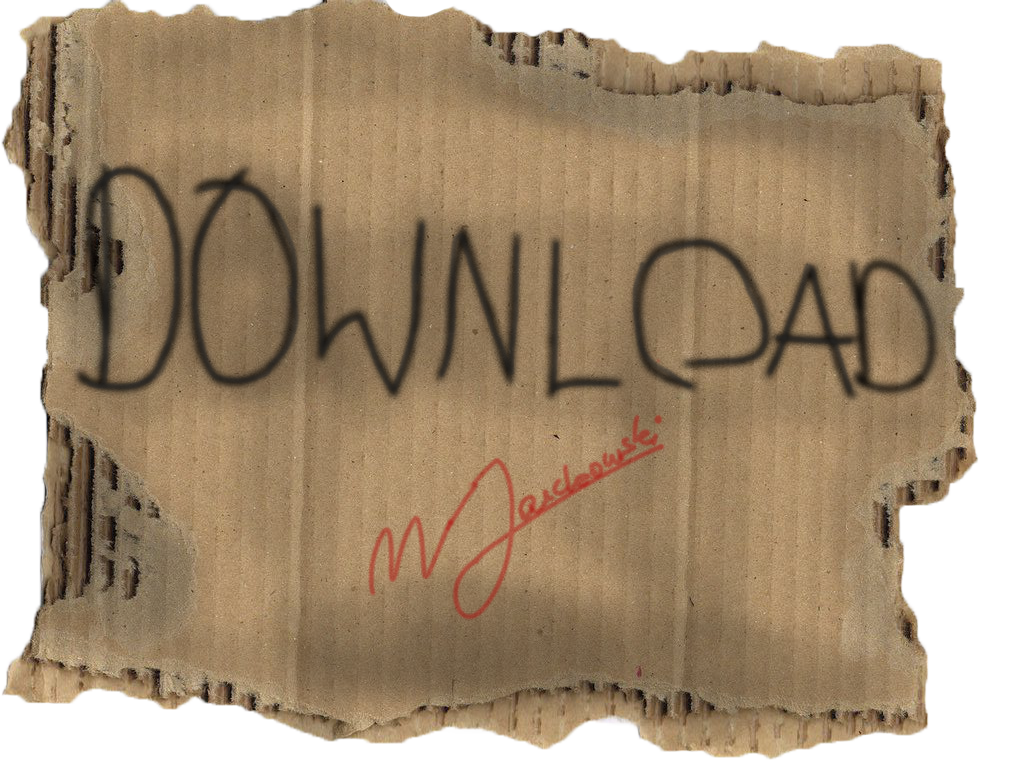 DOWNLOAD
W Jaschowski